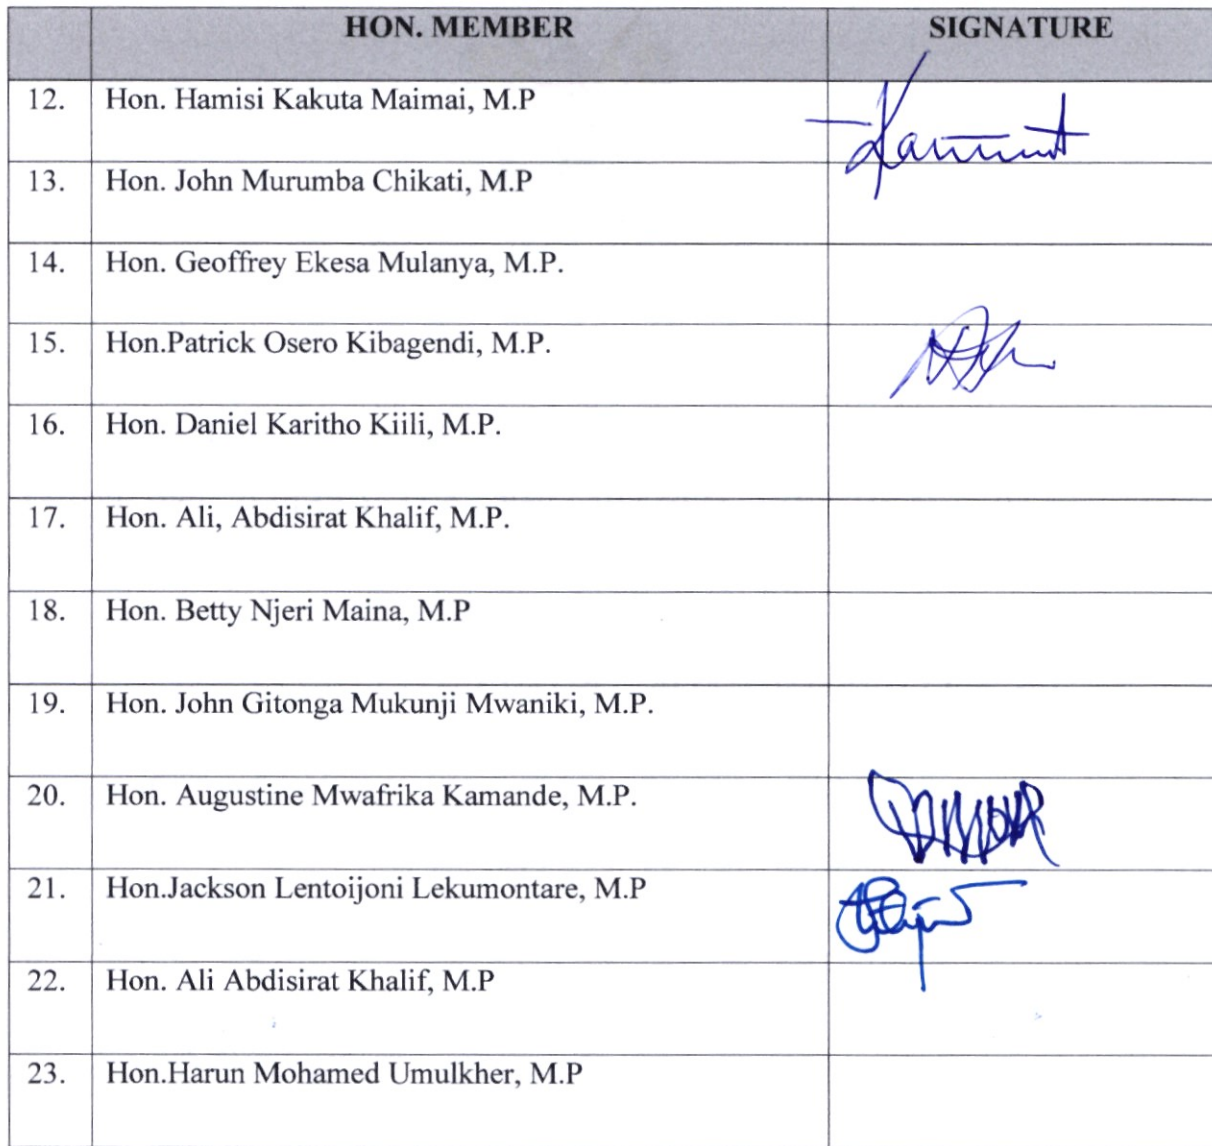 HON. MEMBER SIGNATURE
12. Hon. Hamisi Kakuta Maimai, M.P
13. Hon. John Murumba Chikati, M.P
14. Hon. Geoffrey Ekesa Mulanya, M.P.
15. Hon.Patrick Osero Kibagendi, M.P.
16. Hon. Daniel Karitho Kiili, M.P.
17. Hon. Ali, Abdisirat Khalif, M.P.
18. Hon. Betty Njeri Maina, M.P
19. Hon. John Gitonga Mukunji Mwaniki, M.P.
20. Hon. Augustine Mwafrika Kamande, M.P.
21. Hon.Jackson Lentoijoni Lekumontare, M.P
22. Hon. Ali Abdisirat Khalif, M.P
23. Hon.Harun Mohamed Umulkher, M.P